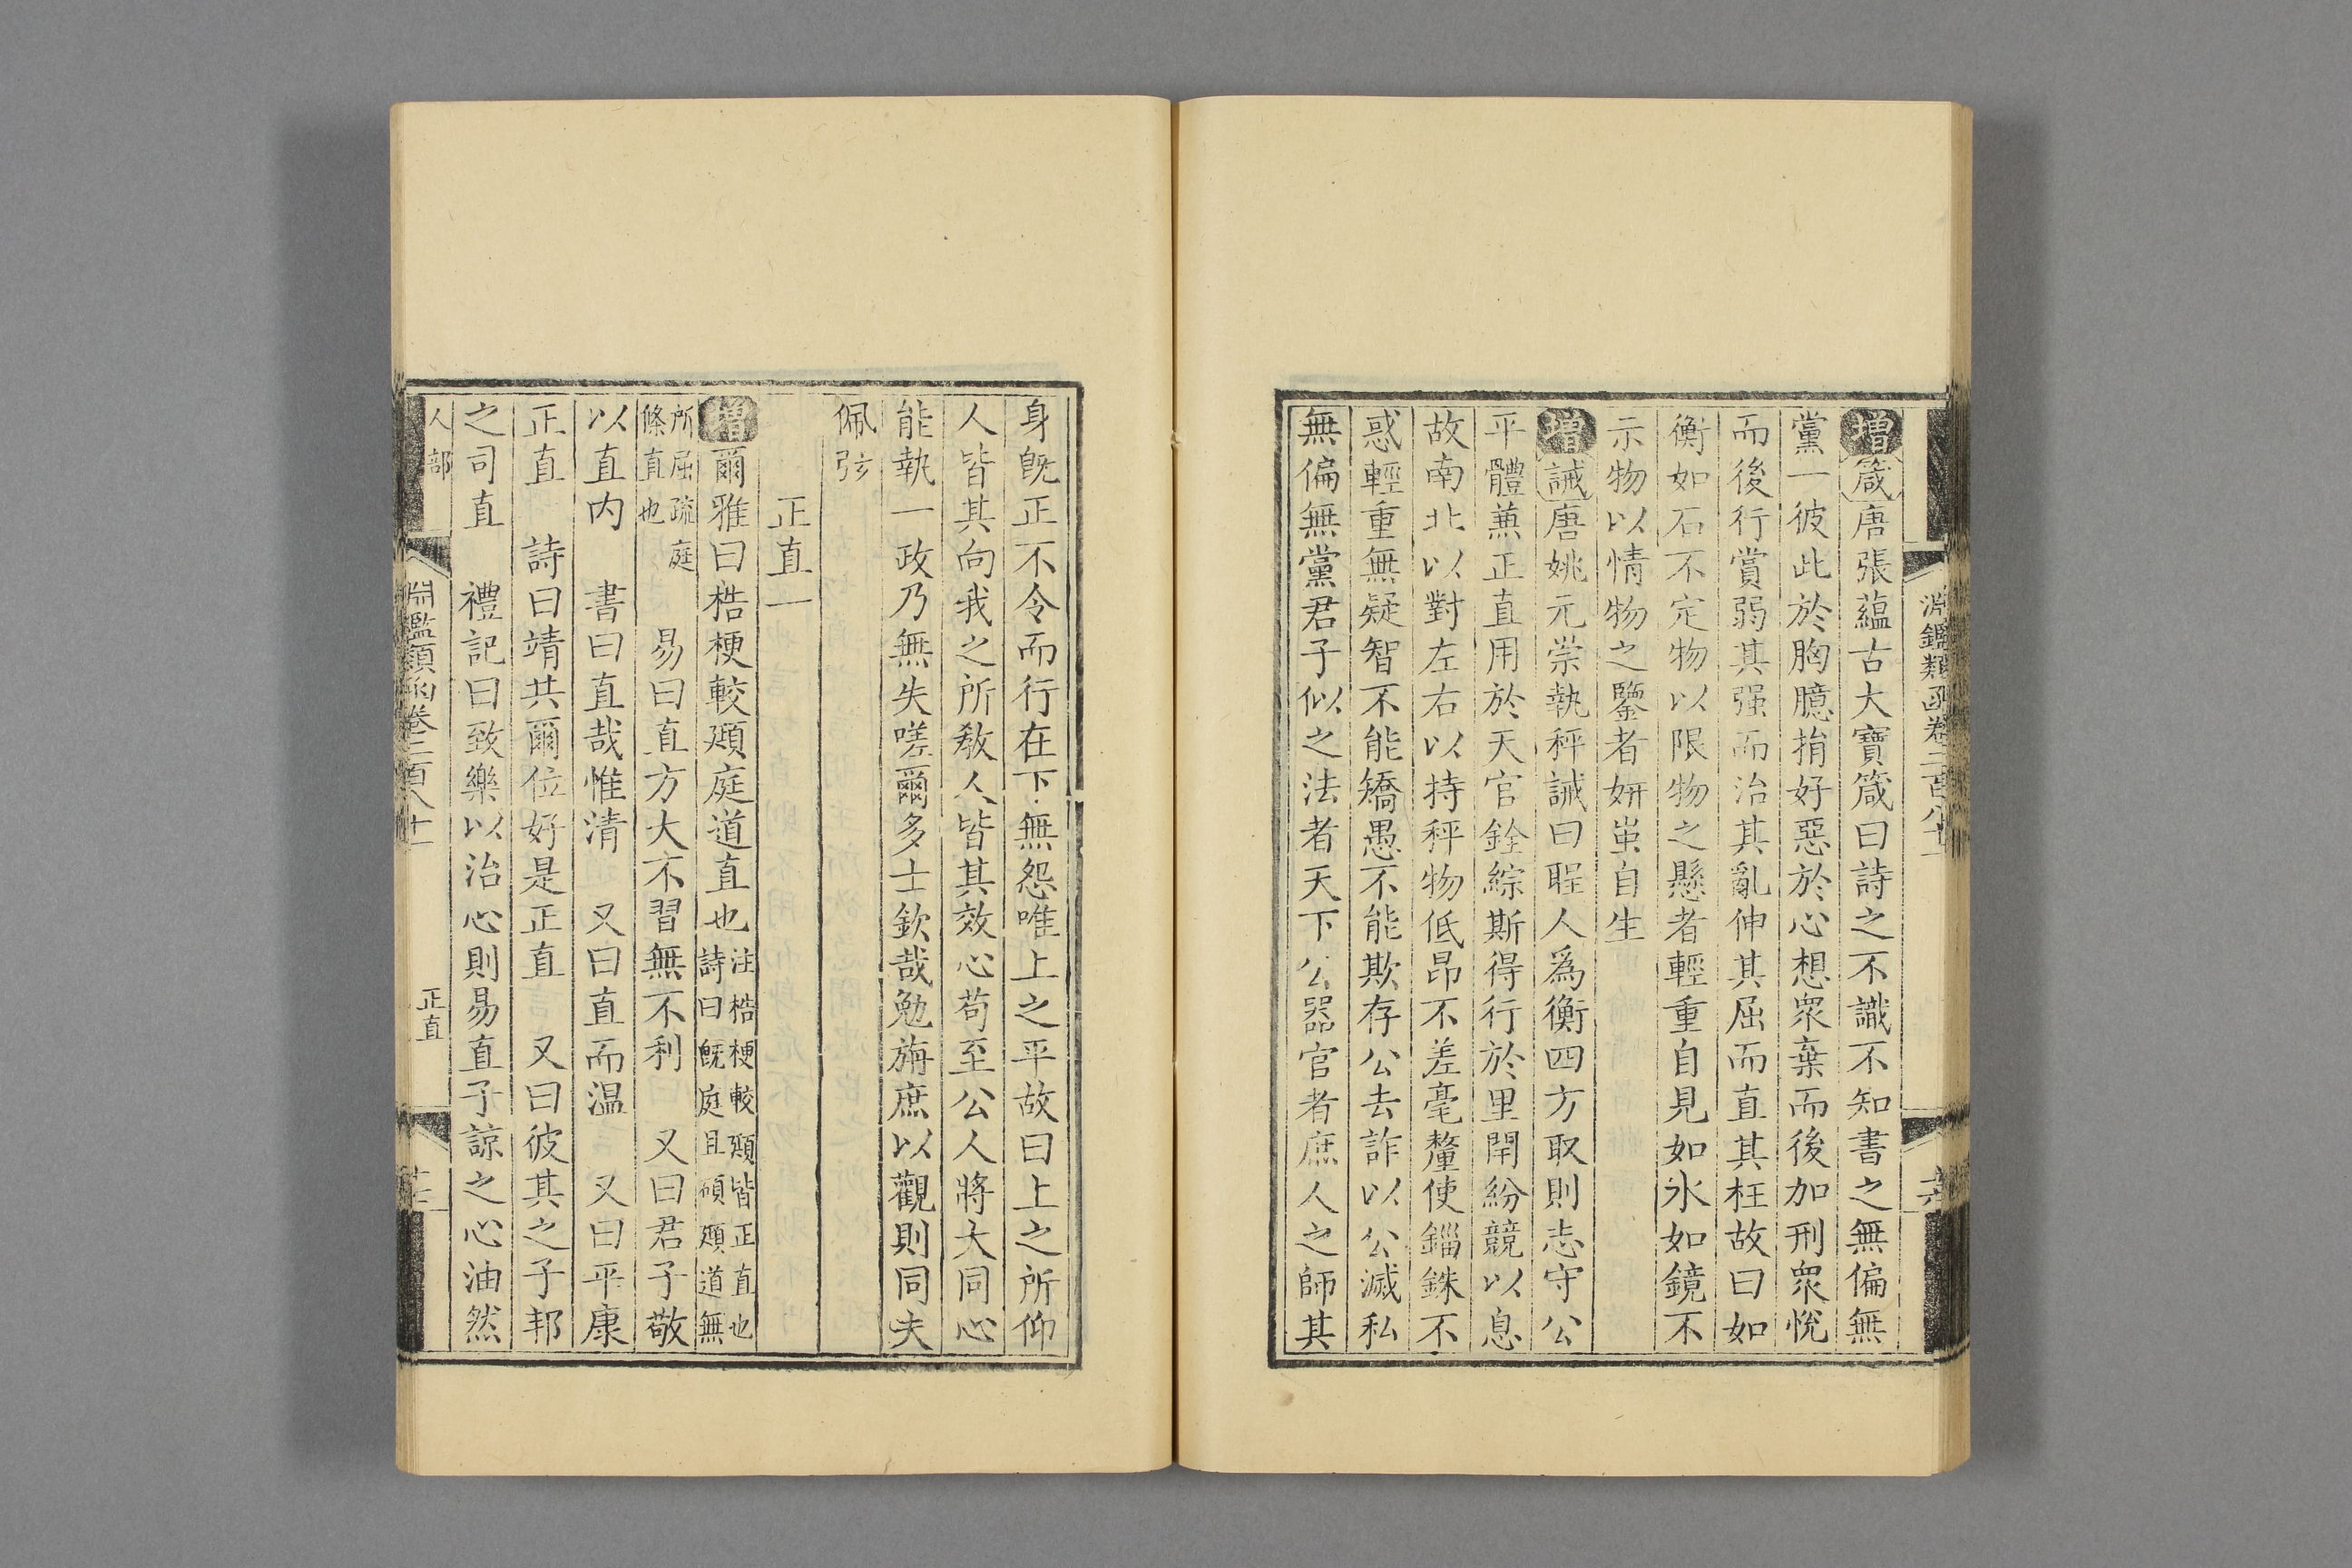 淵鑑類函卷二百八十一
增箴唐張蘊古大寶箴曰詩之不識不知書之無偏無
黨一彼此於胸臆捐好惡於心想衆棄而後加刑衆悅
而後行賞弱其强而治其亂伸其屈而直其枉故曰如
衡如石不定物以限物之懸者輕重自見如氷如鏡不
示物以情物之鑒者妍蚩自生
增誡唐姚元崇執秤誡曰聖人爲衡四方取則志守公
平體兼正直用於天官銓綜斯得行於里閈紛競以息
故南北以對左右以持秤物低昂不差毫釐使錙銖不
惑輕重無疑智不能矯愚不能欺存公去詐以公滅私
無偏無黨君子似之法者天下公器官者庶人之師其
身旣正不令而行在下無怨唯上之平故曰上之所仰
人皆其向我之所敎人皆其效心苟至公人將大同心
能執一政乃無失嗟爾多士欽哉勉旃庶以觀則同夫
佩弦
正直一
增爾雅曰梏梗較頲庭道直也注梏梗較頲皆正直也
詩曰旣庭且碩頲道無
所屈疏庭
條直也
易曰直方大不習無不利　又曰君子敬
以直内　書曰直哉惟清　又曰直而温　又曰平康
正直　詩曰靖共爾位好是正直　又曰彼其之子邦
之司直　禮記曰致樂以治心則易直子諒之心油然
人部
淵鑑類函卷二百八十一
正直